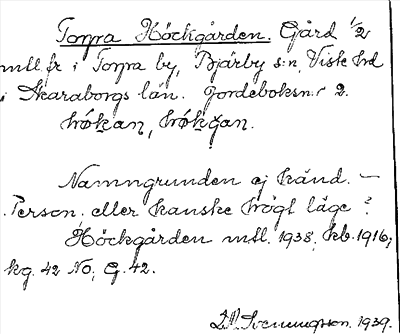 Torpa Höckgården. Gård 1/2
mtl. fr i Torpa by, Bjärby s:n, Viste hd
i Skaraborgs län. Jordeboksn:r 2.
hökan, hökgan.
Namngrunden ej känd. —
Person, eller kanske högt läge?
Höckgården mtl. 1938, kb. 1916;
kg. 42 No, G. 42.
1939.